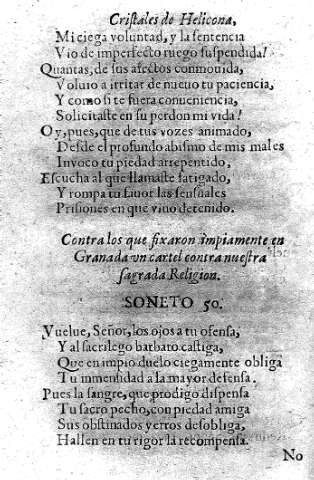 Cristales de Helicona,
Mi ciega voluntad, y la sentencia
Vio de imperfecto ruego suspendida!
Quantas, de sus afectos conmouida,
Voluio a irritar de nueuo tu paciencia,
Y como si te fuera conueniencia,
Solicitaste en su perdon mi vida!
Oy, pues, que de tus vozes animado,
Desde el profundo abismo de mis males
Inuoco tu piedad arrepentido,
Escucha al que llamaste fatigado,
Y rompa tu fauor las sensuales
Prisiones en que viuo detenido.
Contra los que fixaron impiamente en
Granada vn cartel contra nuestra
sagrada Religion.
SONETO 50.
Vuelue, Señor, los ojos a tu ofensa,
Y al sacrilego barbaro castiga,
Que en impio duelo ciegamente obliga
Tu inmensidad a la mayor defensa.
Pues la sangre, que prodigo dispensa
Tu sacro pecho, con piedad amiga
Sus obstinados yerros desobliga,
Hallen en tu rigor la recompensa.
No